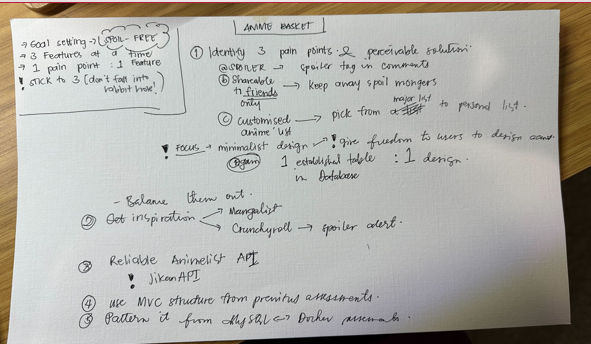 ANIME BASKET
→ Goal setting → SPOIL-FREE
→ 3 Features at a time
→ 1 pain point : 1 feature
! STICK TO 3 (don't fall into
rabbit hole!)
① Identify 3 pain points & perceivable solution.
ⓐ SPOILER → spoiler tag in comments
ⓑ Shareable → keep away spoil mongers
to friends
only
major list
ⓒ customised → pick from a to personal list.
anime list
! FOCUS → minimalist design ! give freedom to users to design
1 established table : 1 design.
in Database
- Balance them out.
② Get inspiration → Mangalist
→ Crunchyroll → spoiler alert.
③ Reliable Animelist API
! JikanAPI
④ use MVC structure from previous assessments.
⑤ Pattern it from MySQL ↔ Docker